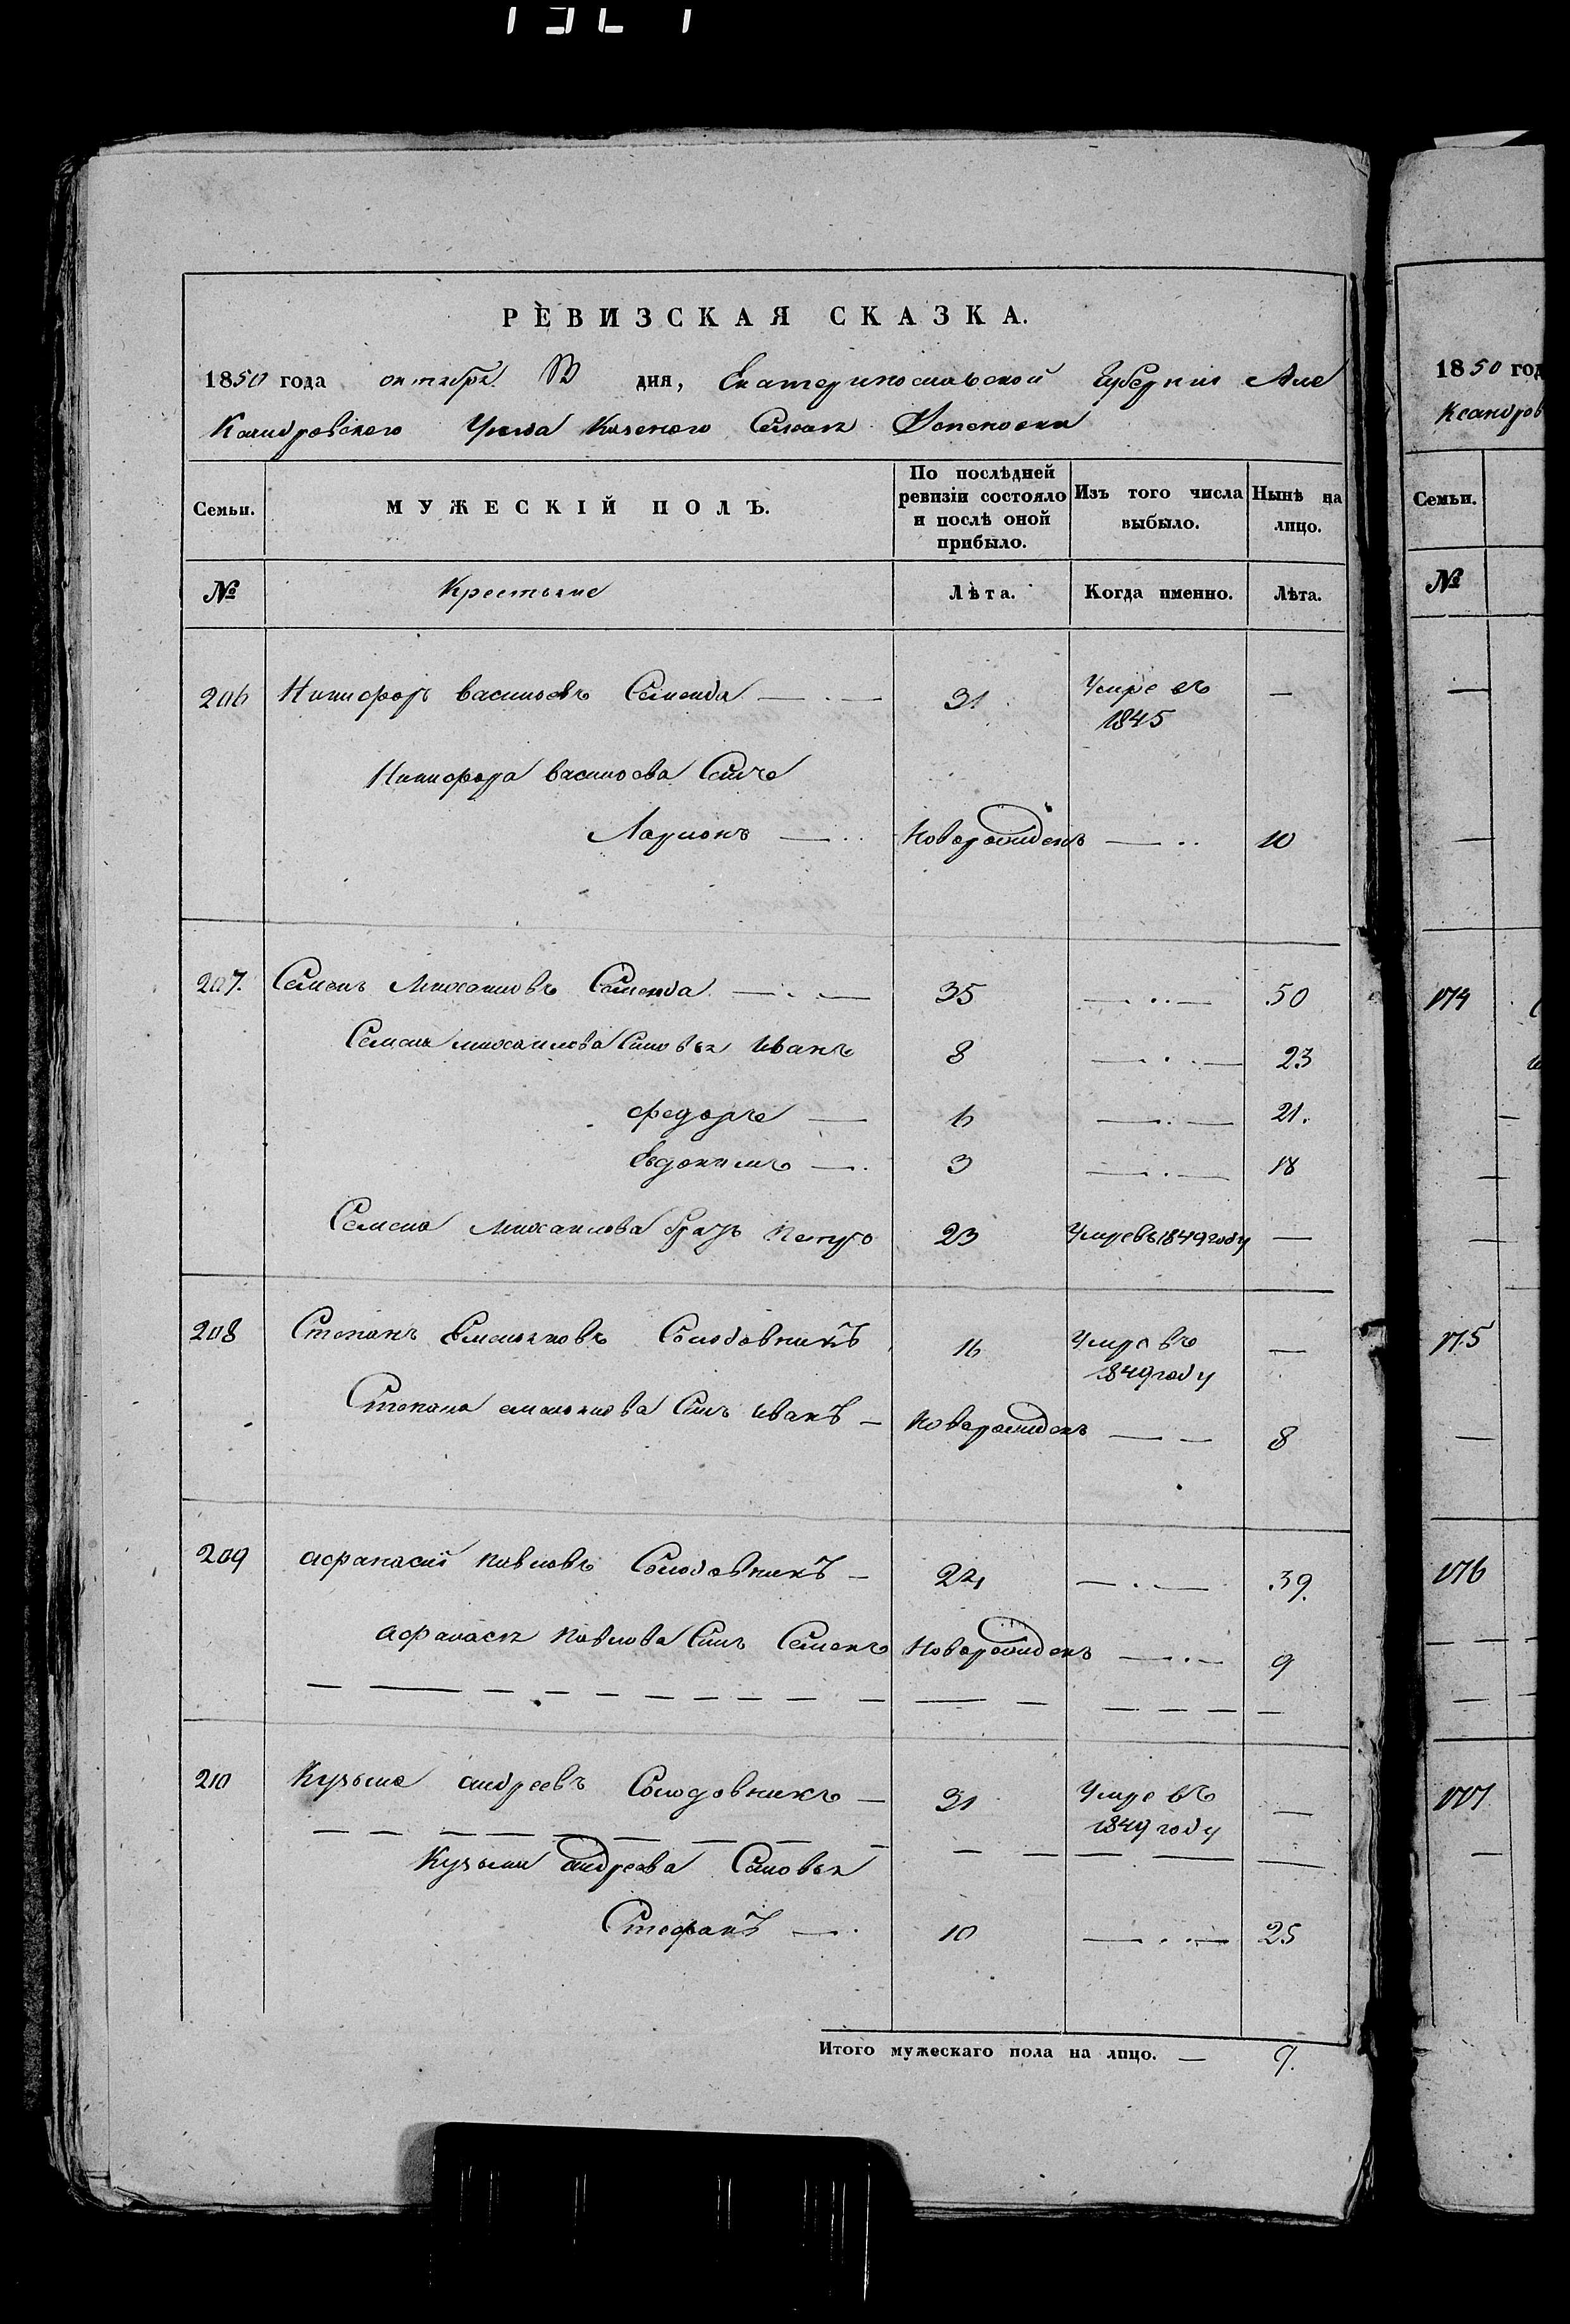 РЕВИЗСКАЯ СКАЗКА.
1850 года октября дня, Екатеринославской Губернии Але
Ксандровского Уезда Казеного Селения
Семьи.
МУЖЕСКІЙ ПОЛЪ.
По послѣдней ревизіи состояло и послѣ оной прибыло.
Изъ того числа выбыло.
Нынѣ на лицо.
№ Крестьяне Лѣта. Когда именно. Лѣта.
206 Никифоръ васильевъ Семенда — . — 31 Умре въ 1845 —
Никифора васильева Сынъ
Ларионъ — . . Новорожденъ — . . 10
207. Семенъ Михайловъ Семенда — . — 35 — . . — 50
Семена михайлова Сыновья Иванъ 8 — . . — 23
федоръ — 6 — . — 21.
Евдокимъ — . 3 — . — 18
Семена Михайлова братъ Петръ 23 Умре въ 1849 году —
208 Степанъ Емельяновъ Солодовникъ 16 Умре въ 1849 году —
Степана емельянова Сынъ Иванъ — Новорожденъ — — 8
209 афанасий павловъ Солодовникъ — 24 — . — 39.
афанасья павлова Сынъ Семенъ Новорожденъ — . — 9
210 Кузьма андреевъ Солодовникъ — 31 Умре въ 1849 году —
Кузьмы андреева Сыновья
Стефанъ — . 10 — . . — 25
Итого мужескаго пола на лицо. — 9.
1850 год
Ксандров
Семьи.
№
174
175
176
177